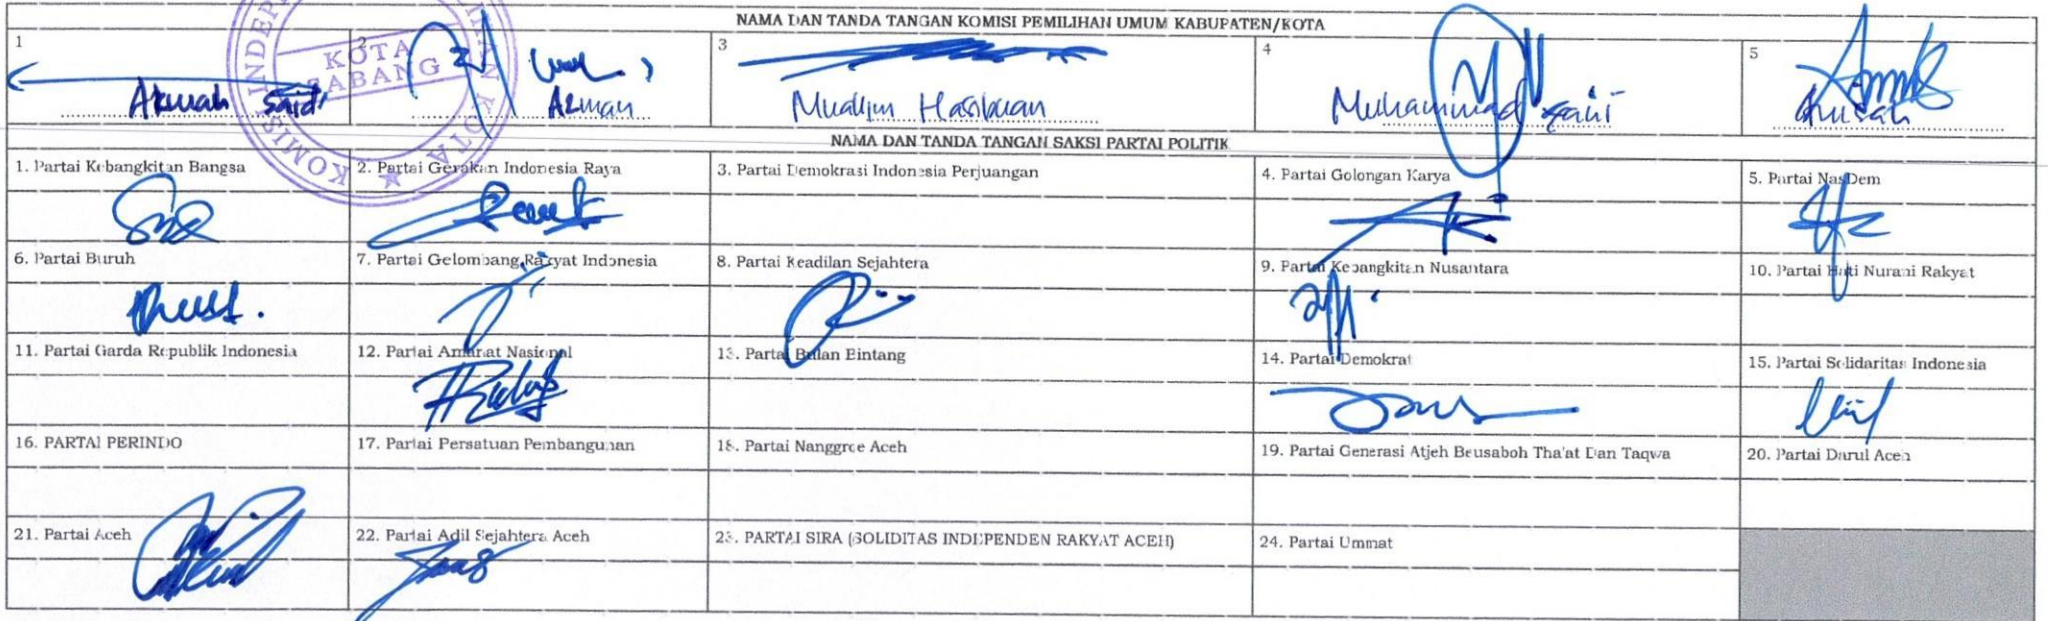 NAMA DAN TANDA TANGAN KOMISI PEMILIHAN UMUM KABUPATEN/KOTA
1 2 3 4 5
KOTA
SABANG
Azman Mualim Hasibuan Muhammad
NAMA DAN TANDA TANGAN SAKSI PARTAI POLITIK
1. Partai Kebangkitan Bangsa 2. Partai Gerakan Indonesia Raya 3. Partai Demokrasi Indonesia Perjuangan 4. Partai Golongan Karya 5. Partai NasDem
6. Partai Buruh 7. Partai Gelombang Rakyat Indonesia 8. Partai Keadilan Sejahtera 9. Partai Kebangkitan Nusantara 10. Partai Hati Nurani Rakyat
11. Partai Garda Republik Indonesia 12. Partai Amanat Nasional 13. Partai Bulan Bintang 14. Partai Demokrat 15. Partai Solidaritas Indonesia
16. PARTAI PERINDO 17. Partai Persatuan Pembangunan 18. Partai Nanggroe Aceh 19. Partai Generasi Atjeh Beusaboh Tha'at Dan Taqwa 20. Partai Darul Aceh
21. Partai Aceh 22. Partai Adil Sejahtera Aceh 23. PARTAI SIRA (SOLIDITAS INDEPENDEN RAKYAT ACEH) 24. Partai Ummat